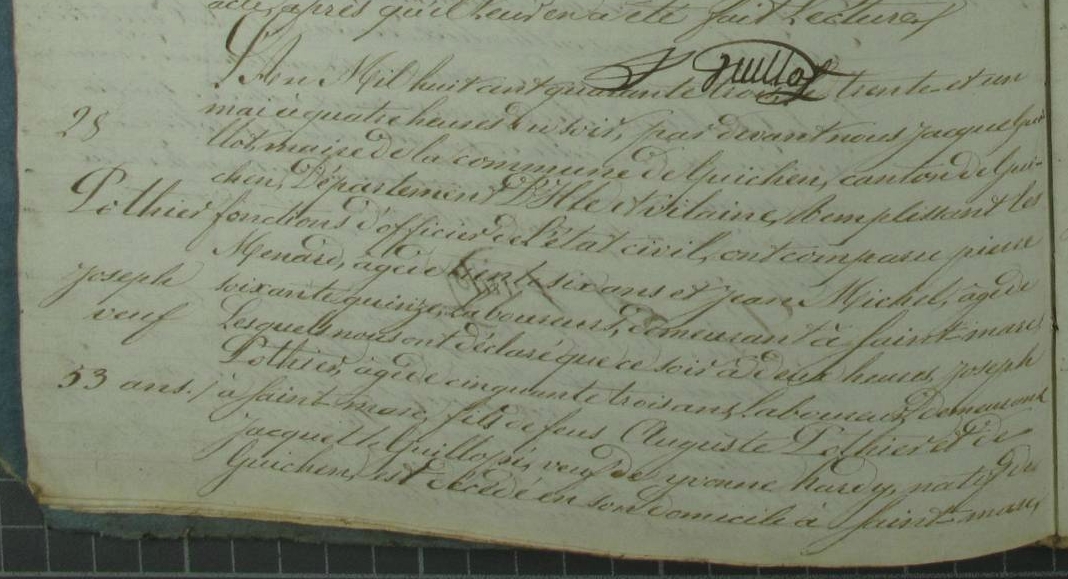 acte, après qu'il leur en a été fait Lecture
J Guillot
L'An Mil huit cent quarante trois le trente et un
28
mai à quatre heures du soir, par devant nous jacque Gui
llot, maire de la commune de Guichen, canton de Gui-
chen, Département D'Ille et Vilaine, Remplissant les
Pothier
fonctions d'officier de L'état civil, ont comparu pierre
Menard, âgé de six ans et jean Michel, âgé de
joseph
soixante quinze, laboureurs, demeurant à saint marc
veuf
Lesquels nous ont déclaré que ce soir à deux heures, joseph
Pothier, âgé de cinquante trois ans, laboureur, demeurant
53 ans.
à saint marc, fils de feus Auguste Pothier et de
jacquette veuf de yvonne hardy, natif de
Guichen, est décédé en son domicile à saint marc,